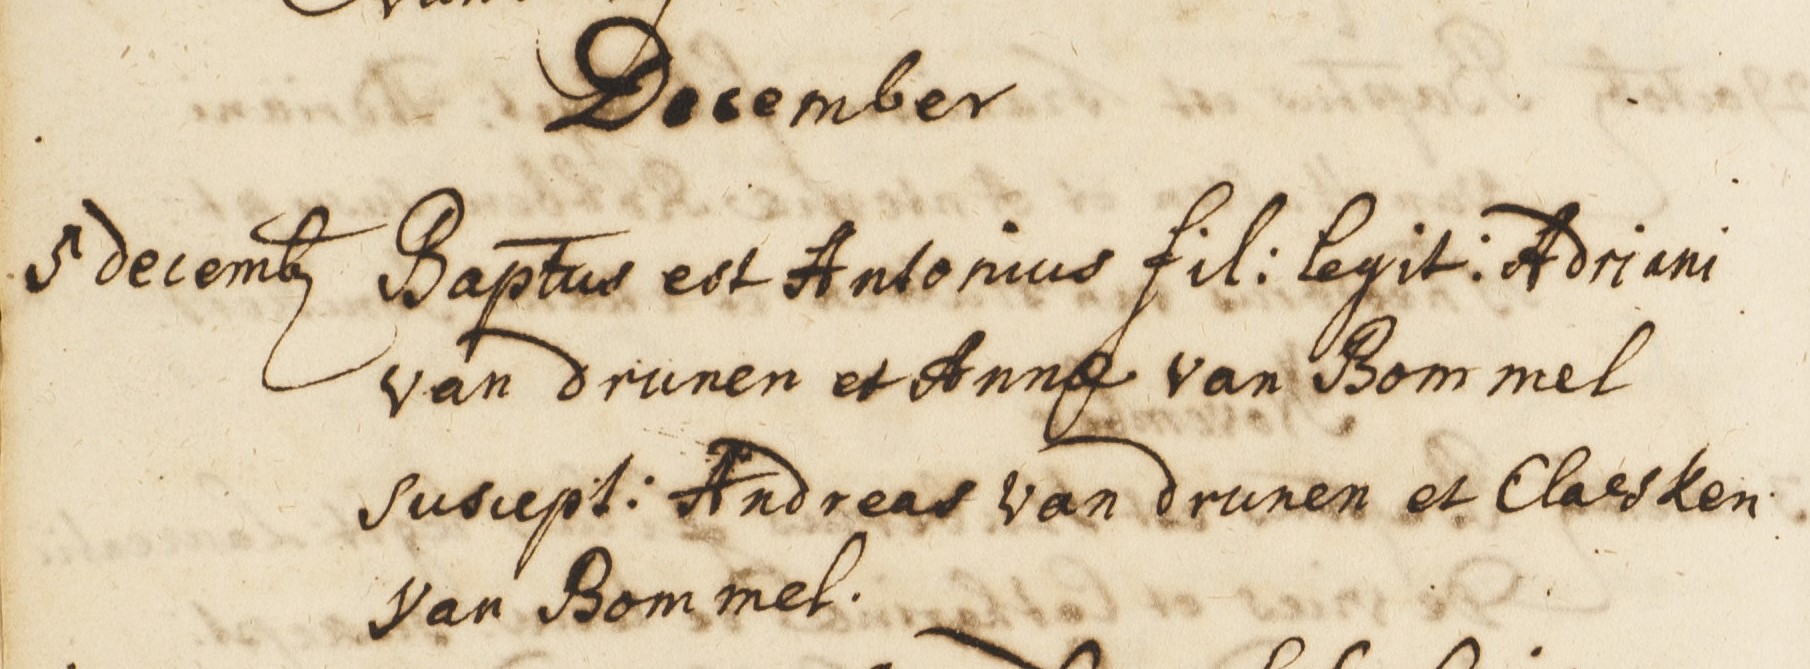 December
5 decemb Baptus est Antonius fil: legit: Adriani
van drunen et Annæ van Bommel
suscept: Andreas van drunen et Claesken
van Bommel.